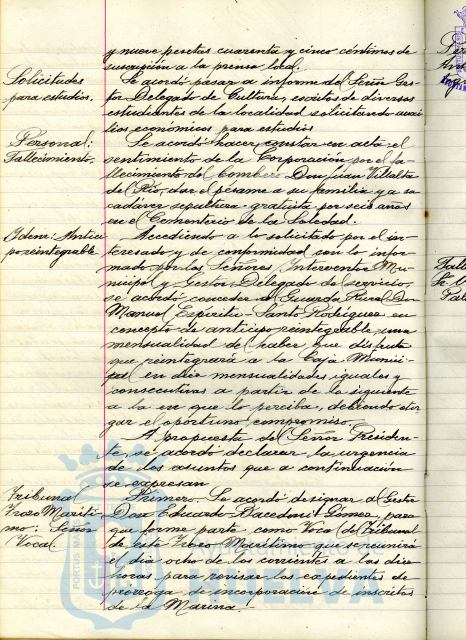 y nueve pesetas cuarenta y cinco céntimos de
suscripción a la prensa local.
Solicitudes
para estudios.
Se acordó pasar a informe del Señor Ges-
tor Delegado de Cultura, escritos de diversos
estudiantes de la localidad solicitando auxi-
lios económicos para estudios
Personal:
Fallecimiento.
Se acordó hacer constar en acta el
sentimiento de la Corporación por el fa-
llecimiento del bombero Don Juan Villalta
del Río, dar el pésame a su familia y a su
cadáver sepultura gratuita por seis años
en el Cementerio de la Soledad.
Idem: Antici
po reintegrable
Accediendo a lo solicitado por el in-
teresado y de conformidad con lo infor-
mado por los Señores Interventor Mu-
nicipal y Gestor Delegado de servicio,
se acordó conceder al Guarda Rural Don
Manuel Espírito-Santo Rodríguez en
concepto de anticipo reintegrable, una
mensualidad del haber que disfruta
que reintegrará a la Caja Munici-
pal en diez mensualidades iguales y
consecutivas a partir de la siguiente
a la en que lo perciba, debiendo otor
gar el oportuno compromiso.
A propuesta del Señor Presiden-
te, se acordó declarar la urgencia
de los asuntos que a continuación
se expresan
Tribunal
Trozo Maríti-
mo: Señor
Vocal
Primero. Se acordó designar al Gestor
Don Eduardo Gómez, para
que forme parte como Vocal del Tribunal
de este Trozo Marítimo que se reunirá
el día ocho de los corrientes a las diez
horas, para revisar los expedientes de
prórroga de incorporación de inscritos
de la Marina.
Ayuntamiento de
HUELVA
PORTUS MARIS